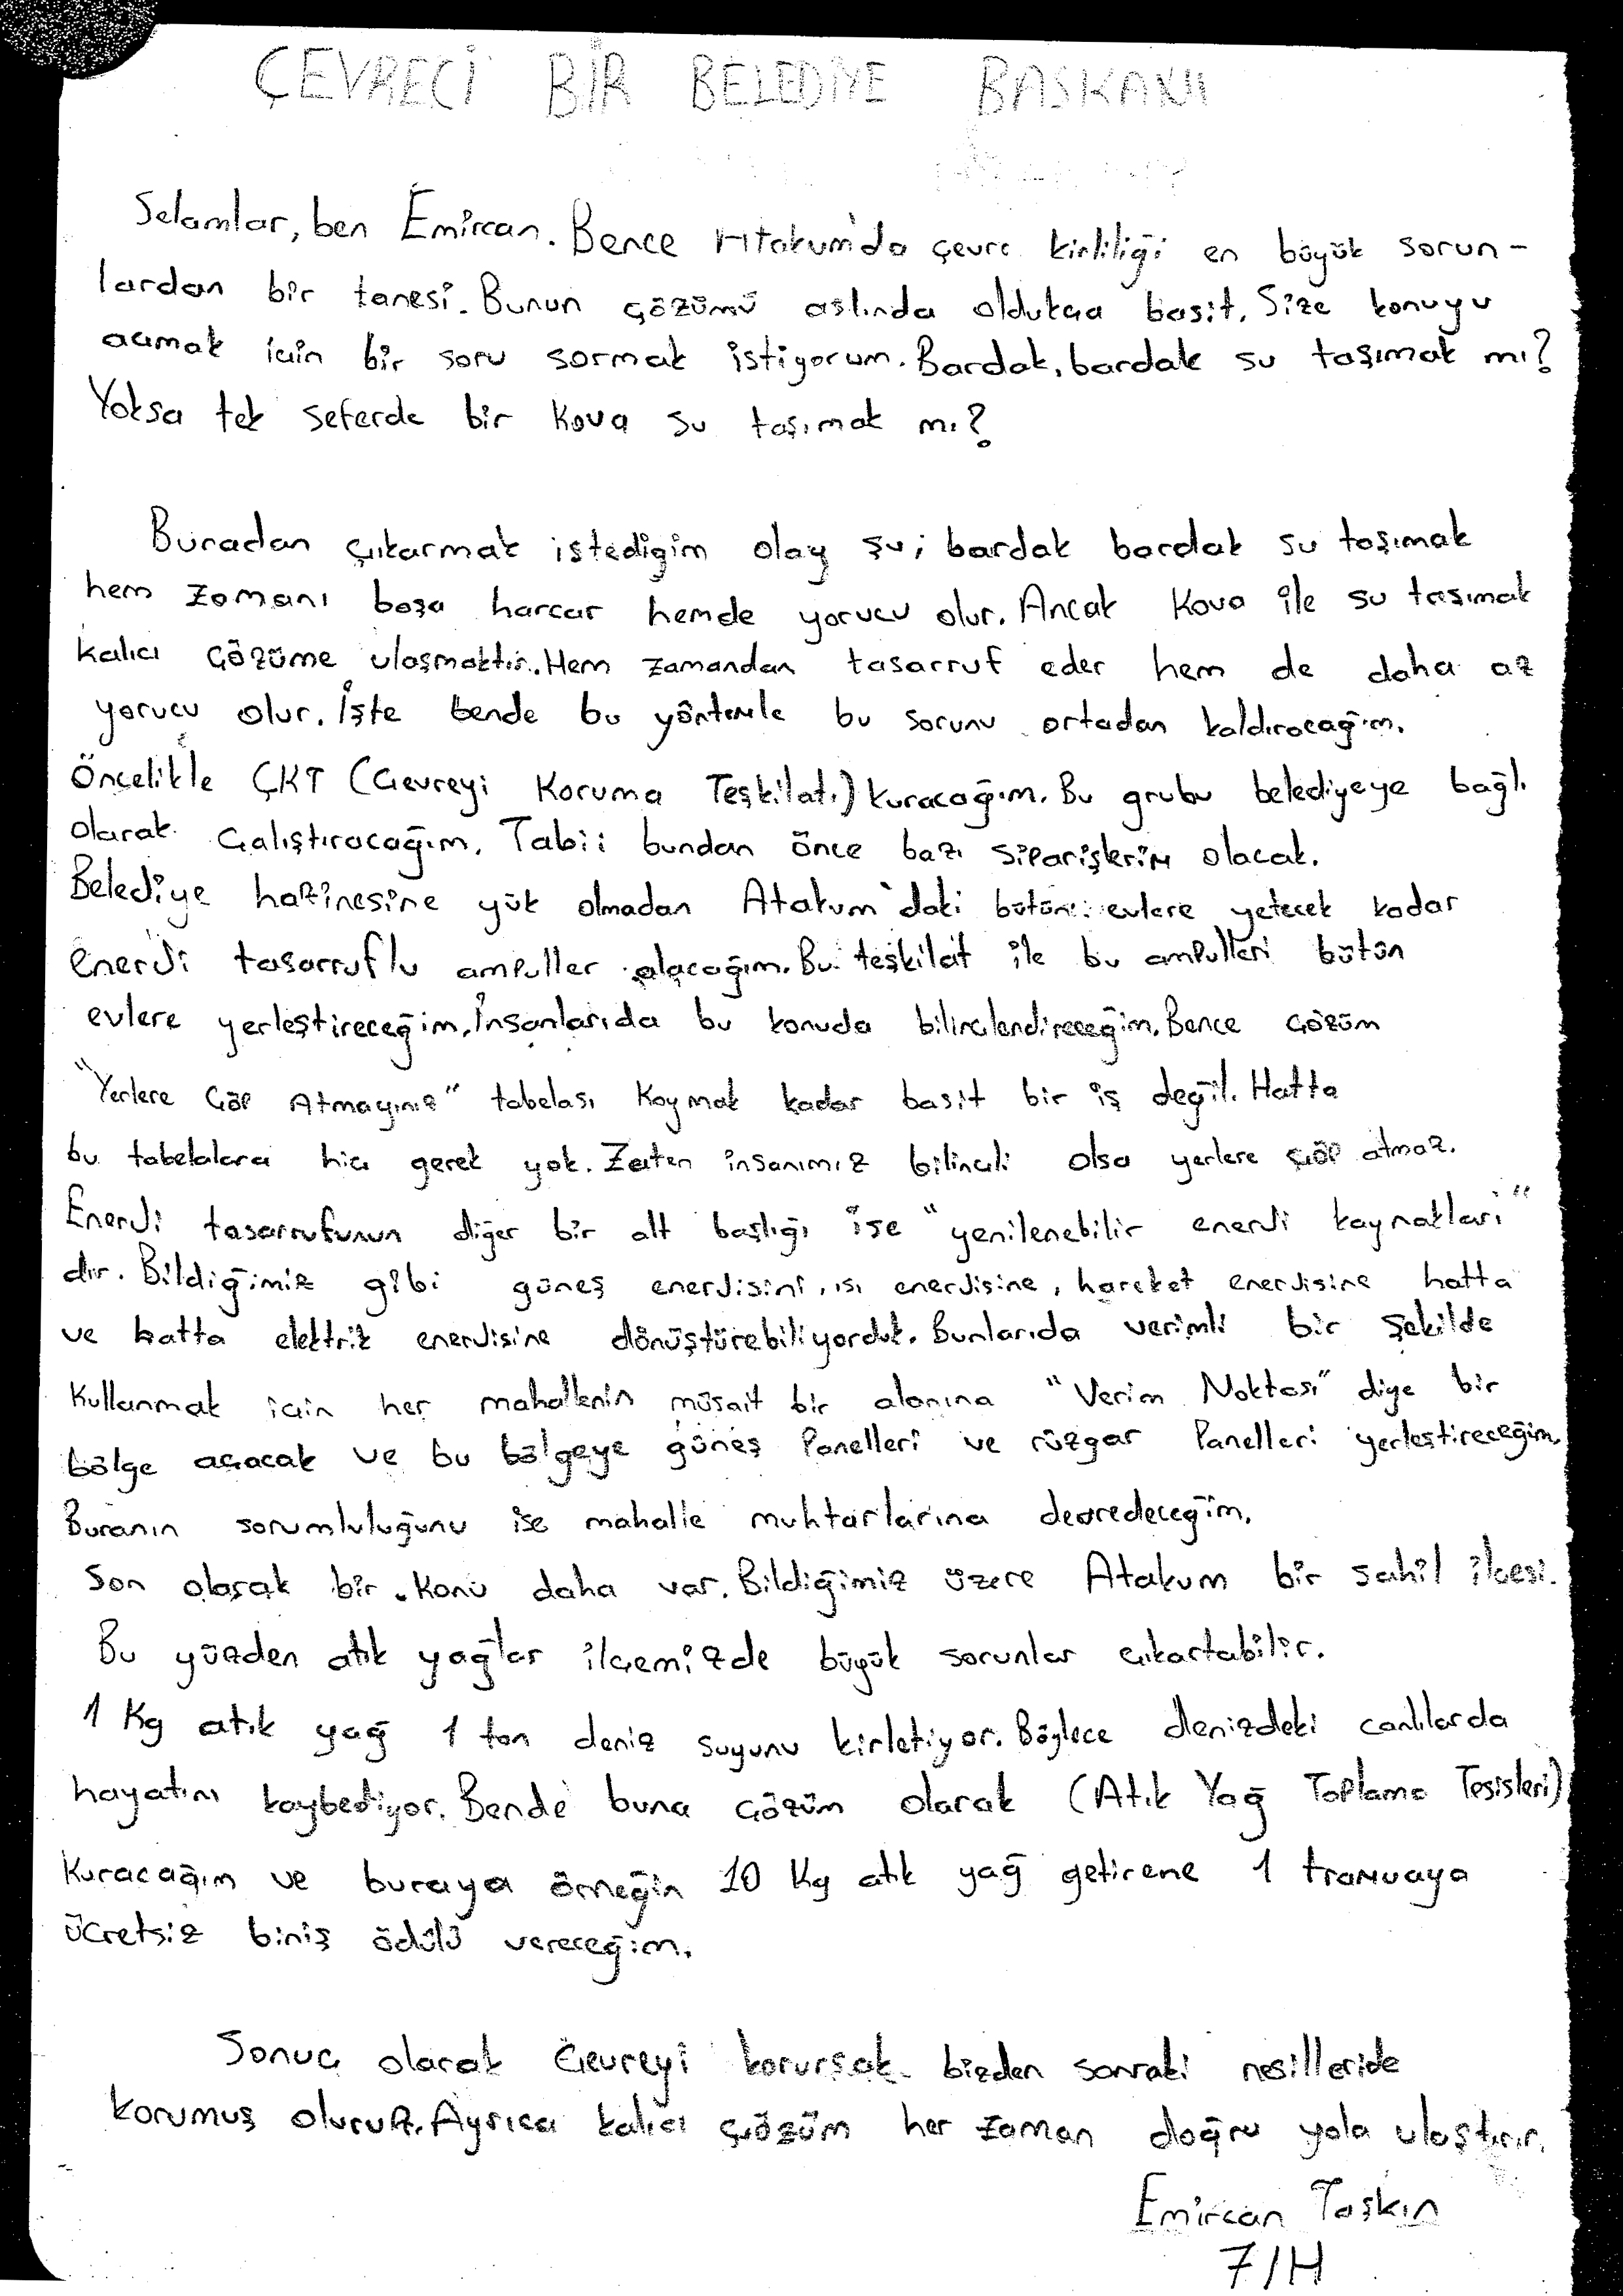 ÇEVRECİ BİR BELEDİYE BAŞKANI
Selamlar, ben Emircan. Bence Atakum'da çevre kirliliği en büyük sorun-
lardan bir tanesi. Bunun çözümü aslında oldukça basit. Size konuyu
açmak için bir soru sormak istiyorum. Bardak, bardak su taşımak mı?
Yoksa tek seferde bir kova su taşımak mı?
Buradan çıkarmak istediğim olay şu; bardak bardak su taşımak
hem zamanı boşa harcar hemde yorucu olur. Ancak kova ile su taşımak
kalıcı çözüme ulaşmaktır. Hem zamandan tasarruf eder hem de daha az
yorucu olur. İşte bende bu yöntemle bu sorunu ortadan kaldıracağım.
Öncelikle ÇKT (Çevreyi Koruma Teşkilatı) kuracağım. Bu grubu belediyeye bağlı
olarak çalıştıracağım. Tabii bundan önce bazı siparişlerim olacak.
Belediye hazinesine yük olmadan Atakum'daki bütün evlere yetecek kadar
enerji tasarruflu ampuller alacağım. Bu teşkilat ile bu ampulleri bütün
evlere yerleştireceğim. İnsanlarıda bu konuda bilinçlendireceğim. Bence çözüm
"Yerlere Çöp Atmayınız" tabelası koymak kadar basit bir iş değil. Hatta
bu tabelalara hiç gerek yok. Zaten insanımız bilinçli olsa yerlere çöp atmaz.
Enerji tasarrufunun diğer bir alt başlığı ise "yenilenebilir enerji kaynakları"
dır. Bildiğimiz gibi güneş enerjisini, ısı enerjisine, hareket enerjisine hatta
ve hatta elektrik enerjisine dönüştürebiliyorduk. Bunlarıda verimli bir şekilde
kullanmak için her mahallenin müsait bir alanına "Verim Noktası" diye bir
bölge açacak ve bu bölgeye güneş panelleri ve rüzgar panelleri yerleştireceğim.
Buranın sorumluluğunu ise mahalle muhtarlarına devredeceğim.
Son olarak bir konu daha var. Bildiğimiz üzere Atakum bir sahil ilçesi.
Bu yüzden atık yağlar ilçemizde büyük sorunlar çıkartabilir.
1 Kg atık yağ 1 ton deniz suyunu kirletiyor. Böylece denizdeki canlılarda
hayatını kaybediyor. Bende buna çözüm olarak (Atık Yağ Toplama Tesisleri)
kuracağım ve buraya örneğin 10 Kg atık yağ getirene 1 tramvaya
ücretsiz biniş ödülü vereceğim.
Sonuç olarak çevreyi korursak bizden sonraki nesilleride
korumuş oluruz. Ayrıca kalıcı çözüm her zaman doğru yola ulaştırır.
Emircan Taşkın
7/H